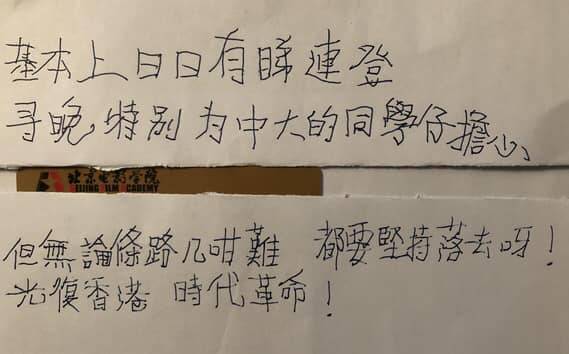 基本上日日有睇連登
寻晚,特別为中大的同學仔擔心、
北京电影学院
BEIJING FILM ACADEMY
但無論條路几咁難 都要堅持落去呀!
光復香港 時代革命!